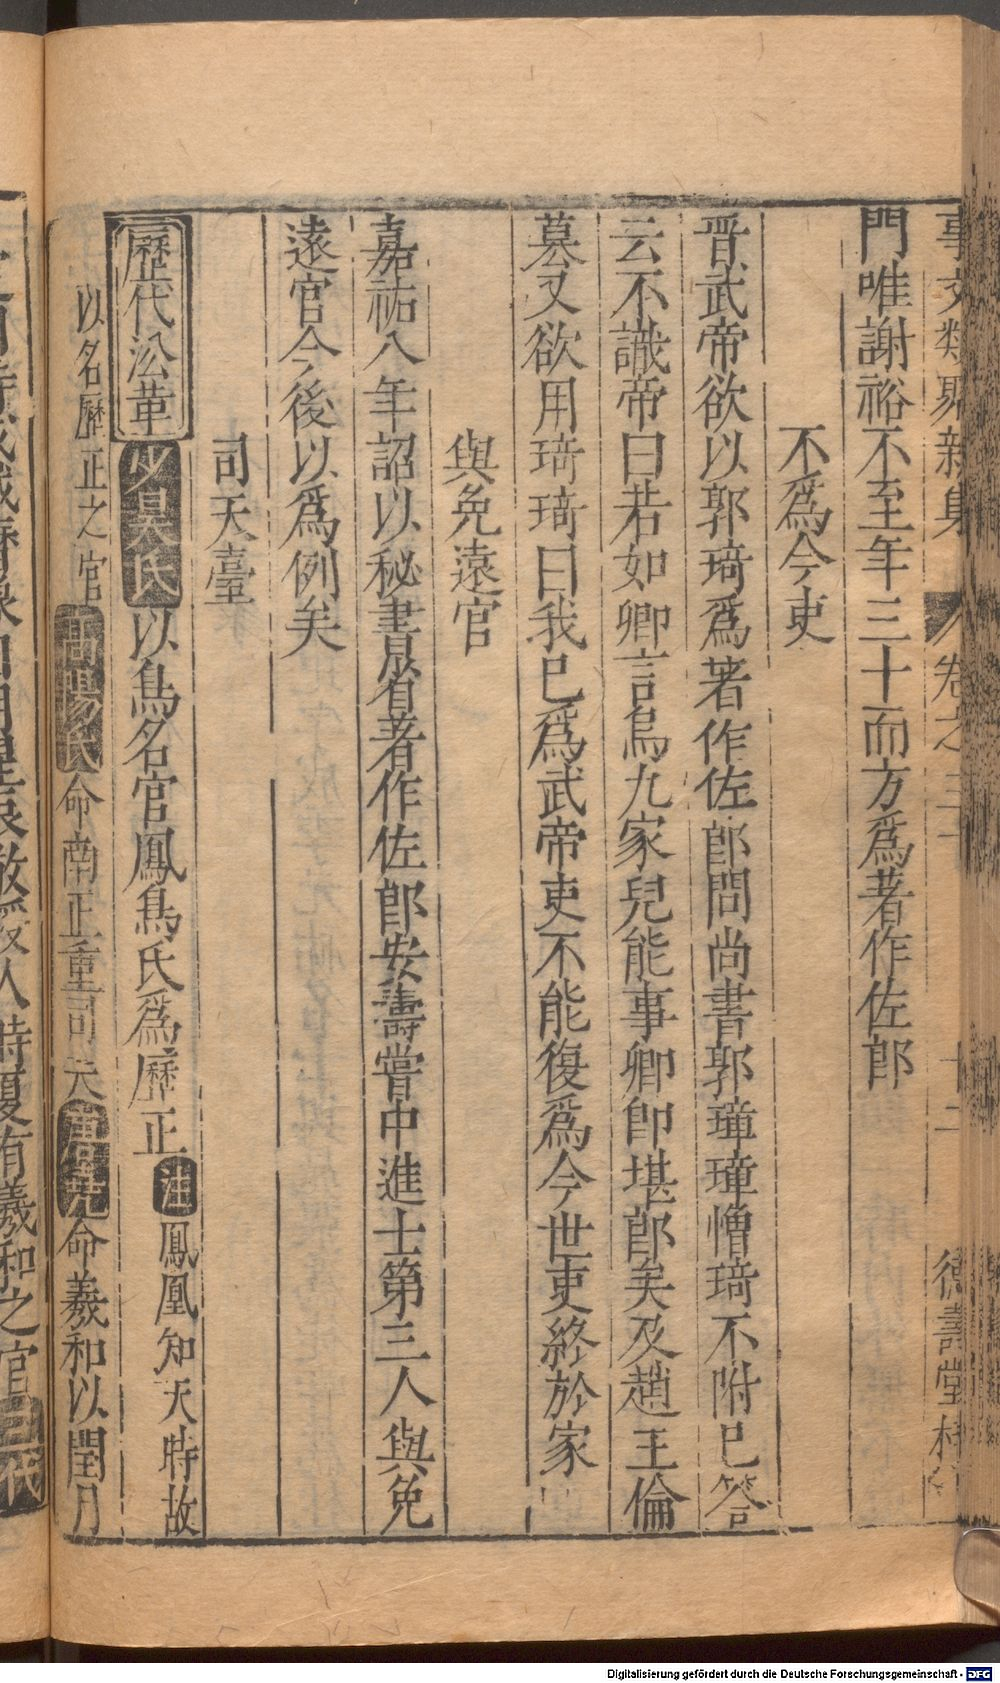 事文類聚新集 卷之三十 十二 德壽堂梓
門唯謝裕不至年三十而方爲著作佐郎
不爲今吏
晋武帝欲以郭琦爲著作佐郎問尚書郭璋璋憎琦不附巳答
云不識帝曰若如卿言烏九家兒能事卿即堪郎矣及趙王倫
簒又欲用琦琦曰我巳爲武帝吏不能復爲今世吏終於家
與免遠官
嘉祐八年詔以秘書晟省著作佐郎安壽嘗中進士第三人與免
遠官今後以爲例矣
司天臺
歷代沿革 少昊氏以鳥名官鳳鳥氏爲歷正 注 鳳凰知天時故
以名歷正之官 高陽氏命南正重司天 唐堯命羲和以閏月
定四時成歲曆象日月星辰敬授人時夏有羲和之官
Digitalisierung gefördert durch die Deutsche Forschungsgemeinschaft - DFG